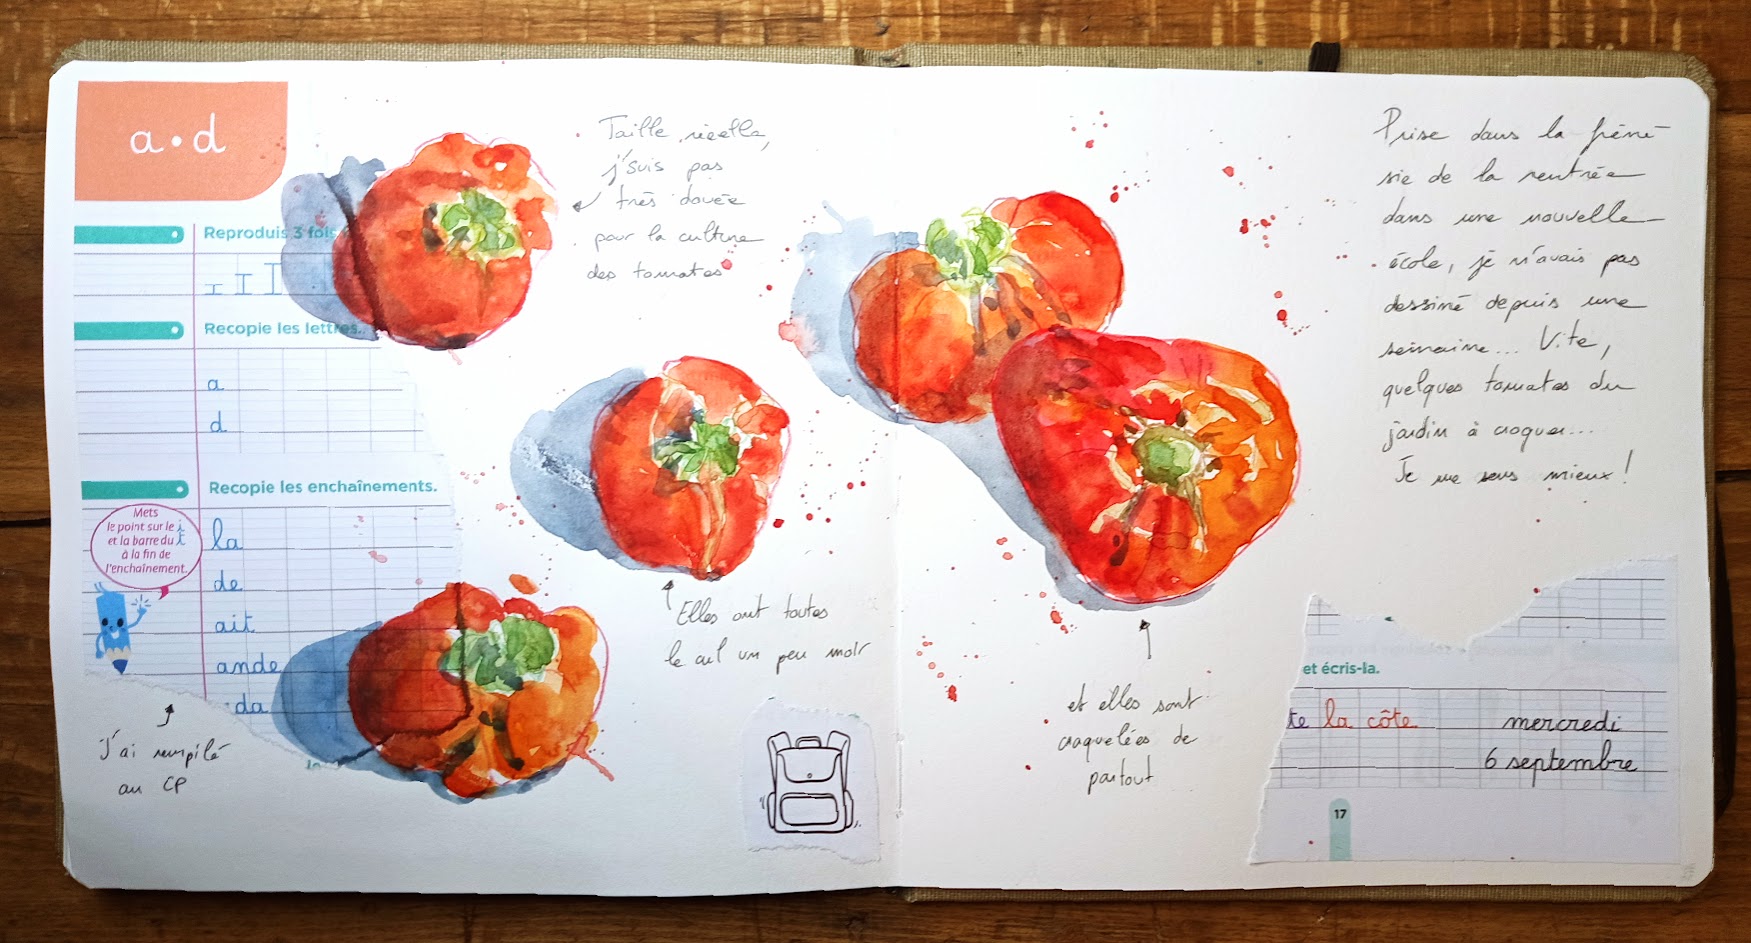 a • d
Reproduis 3 fois
Recopie les lettres.
a
d
Recopie les enchaînements.
Mets
le point sur le i
et la barre du t
à la fin de
l'enchaînement.
la
de
ait
ande
da
J'ai rempilé
au CP
Taille réelle,
j'suis pas
très douée
pour la culture
des tomates
Elles ont toutes
le cul un peu noir
et elles sont
craquelées de
partout
Prise dans la fréné
sie de la rentrée
dans une nouvelle
école, je n'avais pas
dessiné depuis une
semaine... Vite,
quelques tomates du
jardin à croquer...
Je me sens mieux !
et écris-la.
te la côte
mercredi
6 septembre
17